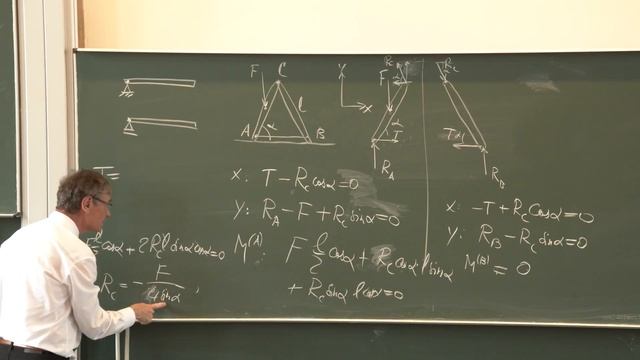 F
C
Y
X
l
A
α
B
R_C
F
α
T
R_A
R_C
T
α
R_B
T=
x: T - R_C cosα = 0
y: R_A - F + R_C sinα = 0
M^(A): F l/2 cosα + R_C cosα l sinα
+ R_C sinα l cosα = 0
x: -T + R_C cosα = 0
y: R_B - R_C sinα = 0
M^(B) = 0
cosα + 2R_C l sinα cosα = 0
R_C = - F / 4 sinα ,